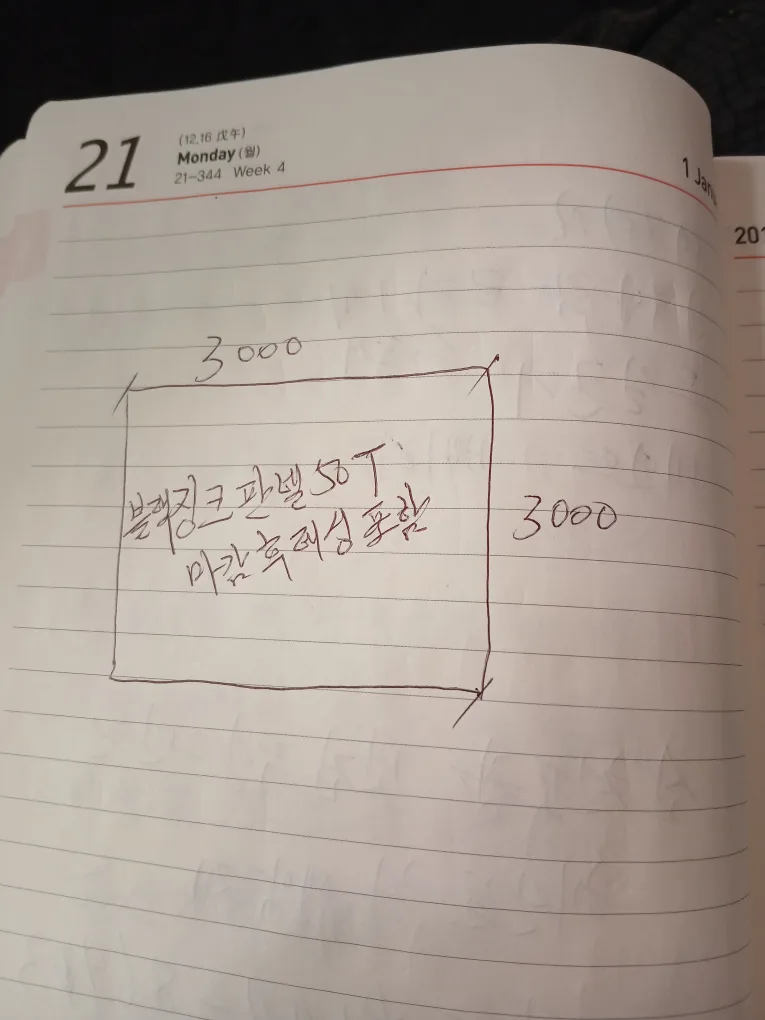 21
(12.16 戊午)
Monday (월)
21-344 Week 4
1 Janu
201
3000
블랙징크판넬 50T
마감후레싱 포함
3000